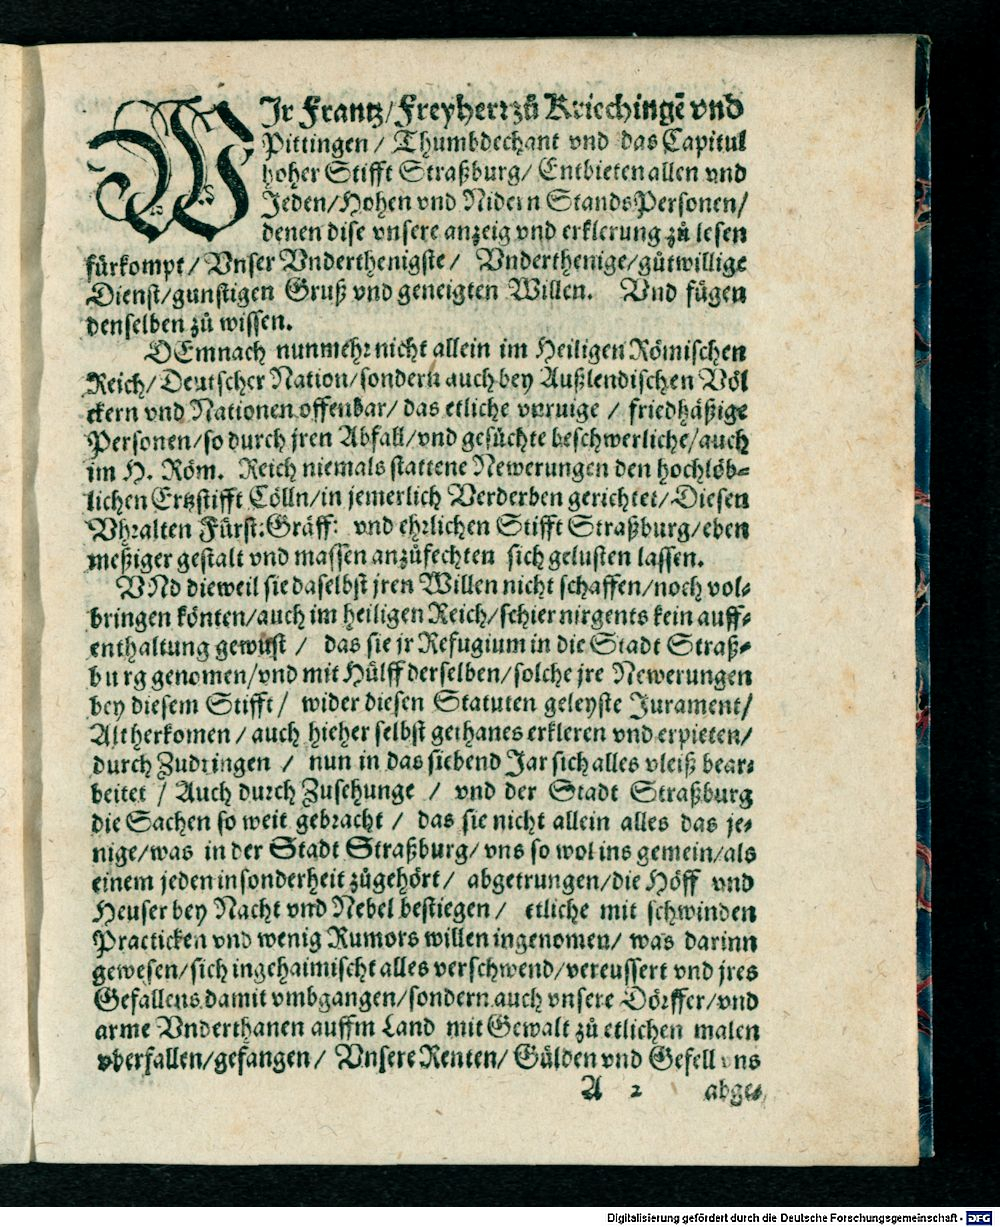 WIr Frantz/Freyherr zů Kriechingē vnd
Pittingen / Thumbdechant vnd das Capitul
hoher Stifft Straßburg/ Entbieten allen vnd
Jeden/Hohen vnd Nidern Stands Personen/
denen dise vnsere anzeig vnd erklerung zů lesen
fürkompt/ Vnser Vnderthenigste/ Vnderthenige/gůtwillige
Dienst/gunstigen Gruß vnd geneigten Willen. Vnd fügen
denselben zů wissen.
DEmnach nunmehr nicht allein im Heiligen Römischen
Reich/Deutscher Nation/sondern auch bey Außlendischen Völ
ckern vnd Nationen offenbar/ das etliche vnruige / friedhäßige
Personen/so durch jren Abfall/vnd gesůchte beschwerliche/auch
im H. Röm. Reich niemals stattene Newerungen den hochlöb-
lichen Ertzstifft Cölln/in jemerlich Verderben gerichtet/Diesen
Vhralten Fürst: Gräff: vnd ehrlichen Stifft Straßburg/eben
meßiger gestalt vnd massen anzůfechten sich gelusten lassen.
VNd dieweil sie daselbst jren Willen nicht schaffen/noch vol-
bringen könten/auch im heiligen Reich/schier nirgents kein auff-
enthaltung gewüst / das sie jr Refugium in die Stadt Straß-
burg genomen/vnd mit Hülff derselben/solche jre Newerungen
bey diesem Stifft/ wider diesen Statuten geleyste Jurament/
Altherkomen / auch hieher selbst gethanes erkleren vnd erpieten/
durch Zudringen / nun in das siebend Jar sich alles vleiß bear-
beitet / Auch durch Zusehunge / vnd der Stadt Straßburg
die Sachen so weit gebracht / das sie nicht allein alles das je-
nige/was in der Stadt Straßburg/ vns so wol ins gemein/als
einem jeden insonderheit zůgehört/ abgetrungen/die Höff vnd
Heuser bey Nacht vnd Nebel bestiegen/ etliche mit schwinden
Practicken vnd wenig Rumors willen ingenomen/ was darinn
gewesen/sich ingehaimischt alles verschwend/vereussert vnd jres
Gefallens damit vmbgangen/sondern auch vnsere Dörffer/vnd
arme Vnderthanen auffm Land mit Gewalt zů etlichen malen
vberfallen/gefangen/ Vnsere Renten/ Gülden vnd Gefell vns
A 2 abge-
Digitalisierung gefördert durch die Deutsche Forschungsgemeinschaft - DFG